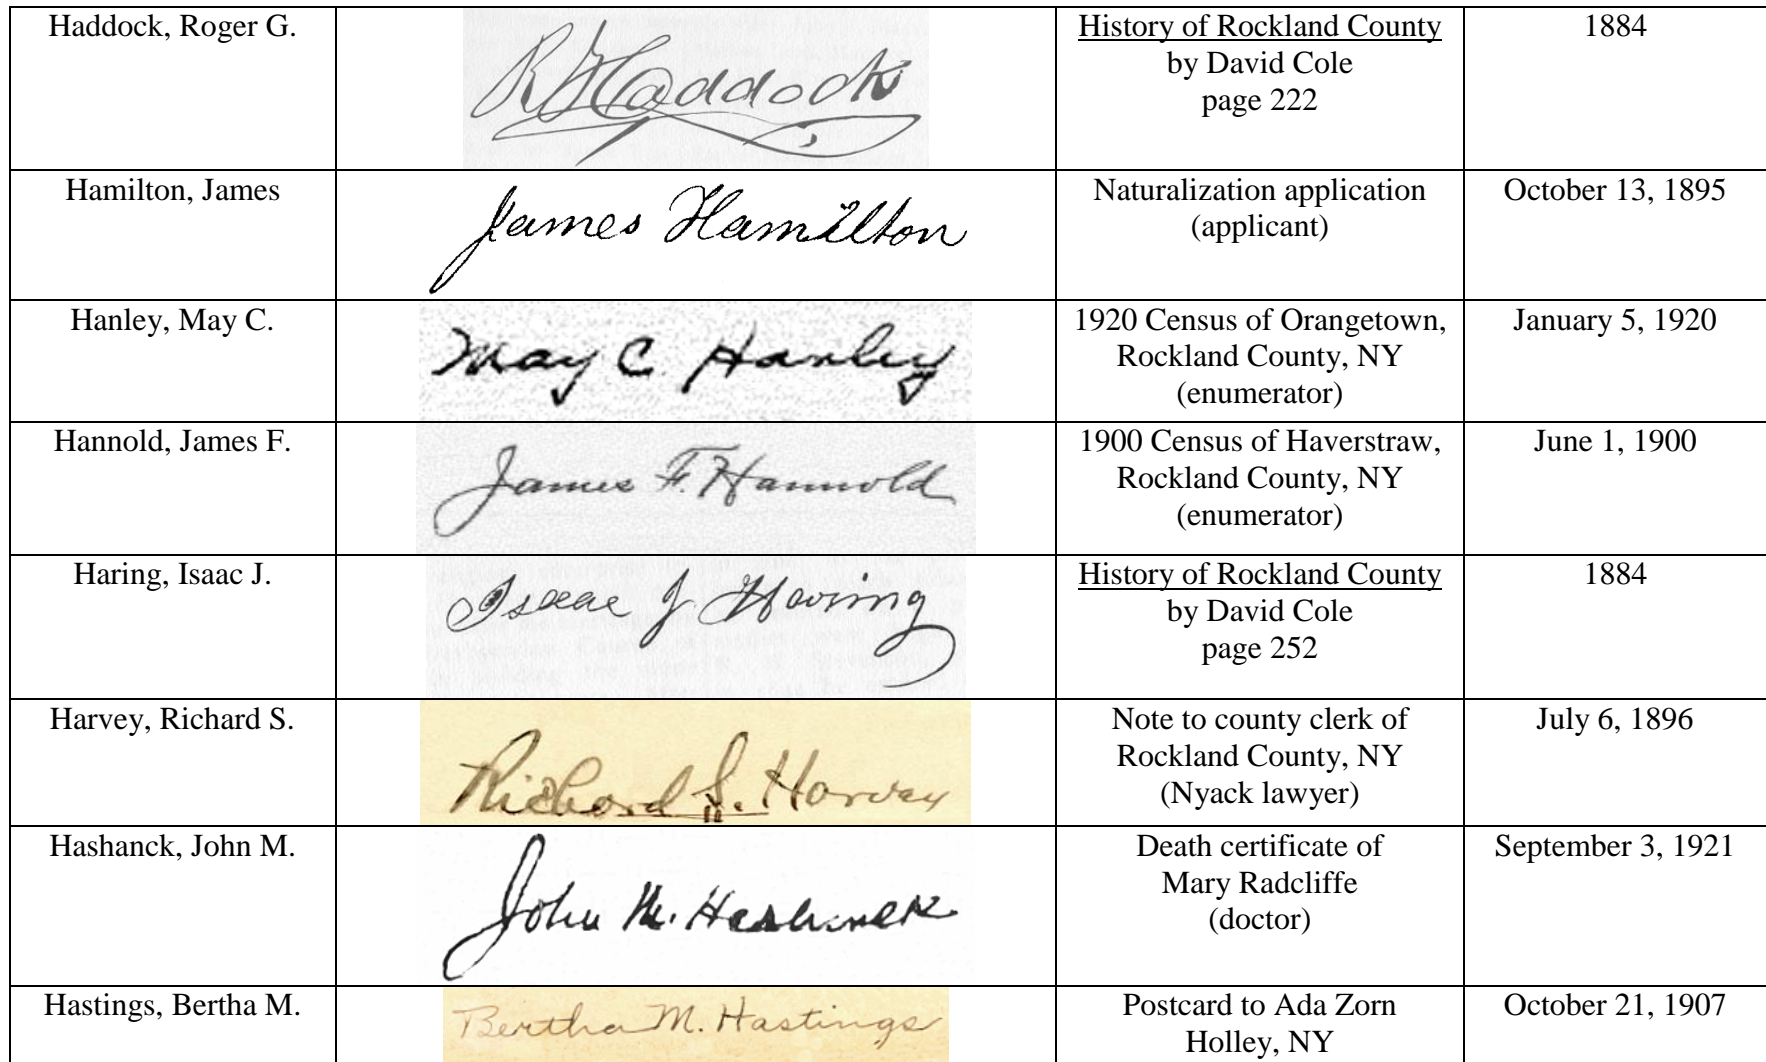 Haddock, Roger G.
R G Haddock
History of Rockland County
by David Cole
page 222
1884
Hamilton, James
James Hamilton
Naturalization application
(applicant)
October 13, 1895
Hanley, May C.
May C. Hanley
1920 Census of Orangetown,
Rockland County, NY
(enumerator)
January 5, 1920
Hannold, James F.
James F. Hannold
1900 Census of Haverstraw,
Rockland County, NY
(enumerator)
June 1, 1900
Haring, Isaac J.
Isaac J Haring
History of Rockland County
by David Cole
page 252
1884
Harvey, Richard S.
Richard S. Harvey
Note to county clerk of
Rockland County, NY
(Nyack lawyer)
July 6, 1896
Hashanck, John M.
John M. Hashanck
Death certificate of
Mary Radcliffe
(doctor)
September 3, 1921
Hastings, Bertha M.
Bertha M. Hastings
Postcard to Ada Zorn
Holley, NY
October 21, 1907